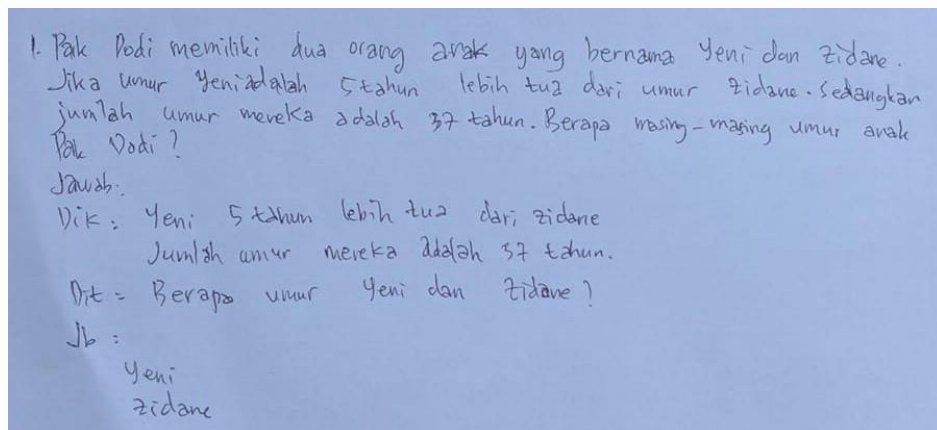 1. Pak Dodi memiliki dua orang anak yang bernama Yeni dan Zidane.
Jika umur Yeni adalah 5 tahun lebih tua dari umur Zidane. Sedangkan
jumlah umur mereka adalah 37 tahun. Berapa masing-masing umur anak
Pak Dodi?
Jawab:
Dik : Yeni 5 tahun lebih tua dari zidane
Jumlah umur mereka adalah 37 tahun.
Dit = Berapa umur Yeni dan Zidane?
Jb :
Yeni
Zidane